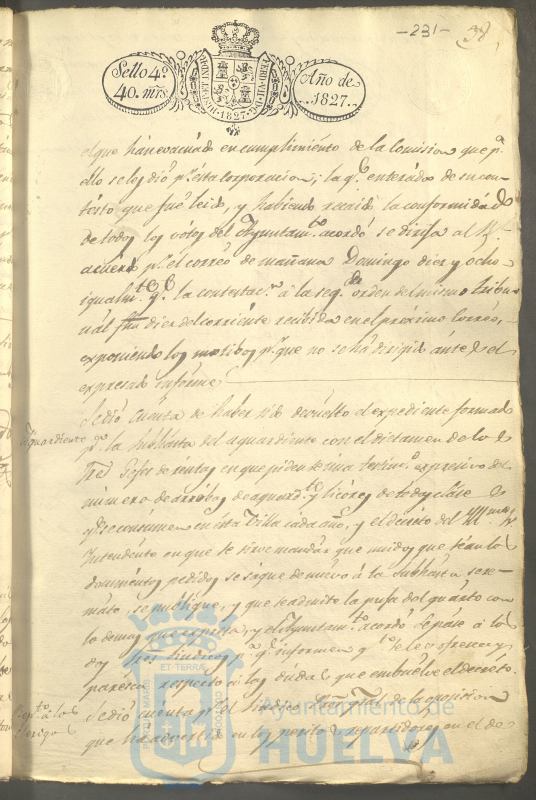 -231-
38
Sello 4º
40. mrs.
Año de
1827.
HISP. ET IND. R. 1827
el que han evacuado en cumplimiento de la Comision que pª
ello se les dió pr. esta corporacion; la qe. enterada de su con-
testo que fué leido, y habiendo recaido la conformidad
de todos los votos del Ayuntamto. acordó se dirija al Rl.
acuerdo pr. el correo de mañana Domingo diez y ocho
igualmte. qe. la contestacn. á la segda. orden del mismo tribu-
nal fha diez del corriente recibida en el próximo correo,
exponiendo los motibos pr. que no se há dirigido ántes el
expresado informe
Aguardiente
Se dió cuenta de haber sido devuelto el expediente formado
pª. la subhasta del aguardiente con el dictamen de los
Tres Gefes de rentas en que piden se una testimº. expresivo del
número de arrobas de aguardte. y licores de toda clase
que se consumen en esta Villa cada año, y el decreto del
Intendente en que se sirve mandar que unidos que séan los
documentos pedidos se saque de nuevo á la subhasta y re-
mate, se publique, y que se admita la puja del quarto con
lo demas que expresa, y el Ayuntamto. acordó se pase á los
dos Sres. Sindicos pª. qe. informen qto. se les ofrezca y
paresca respecto á las dudas que embuelve el decreto.
Se dió cuenta pr. el de la oposicion
que ha advertido en los peritos repartidores en el de
Ayuntamiento de
HUELVA